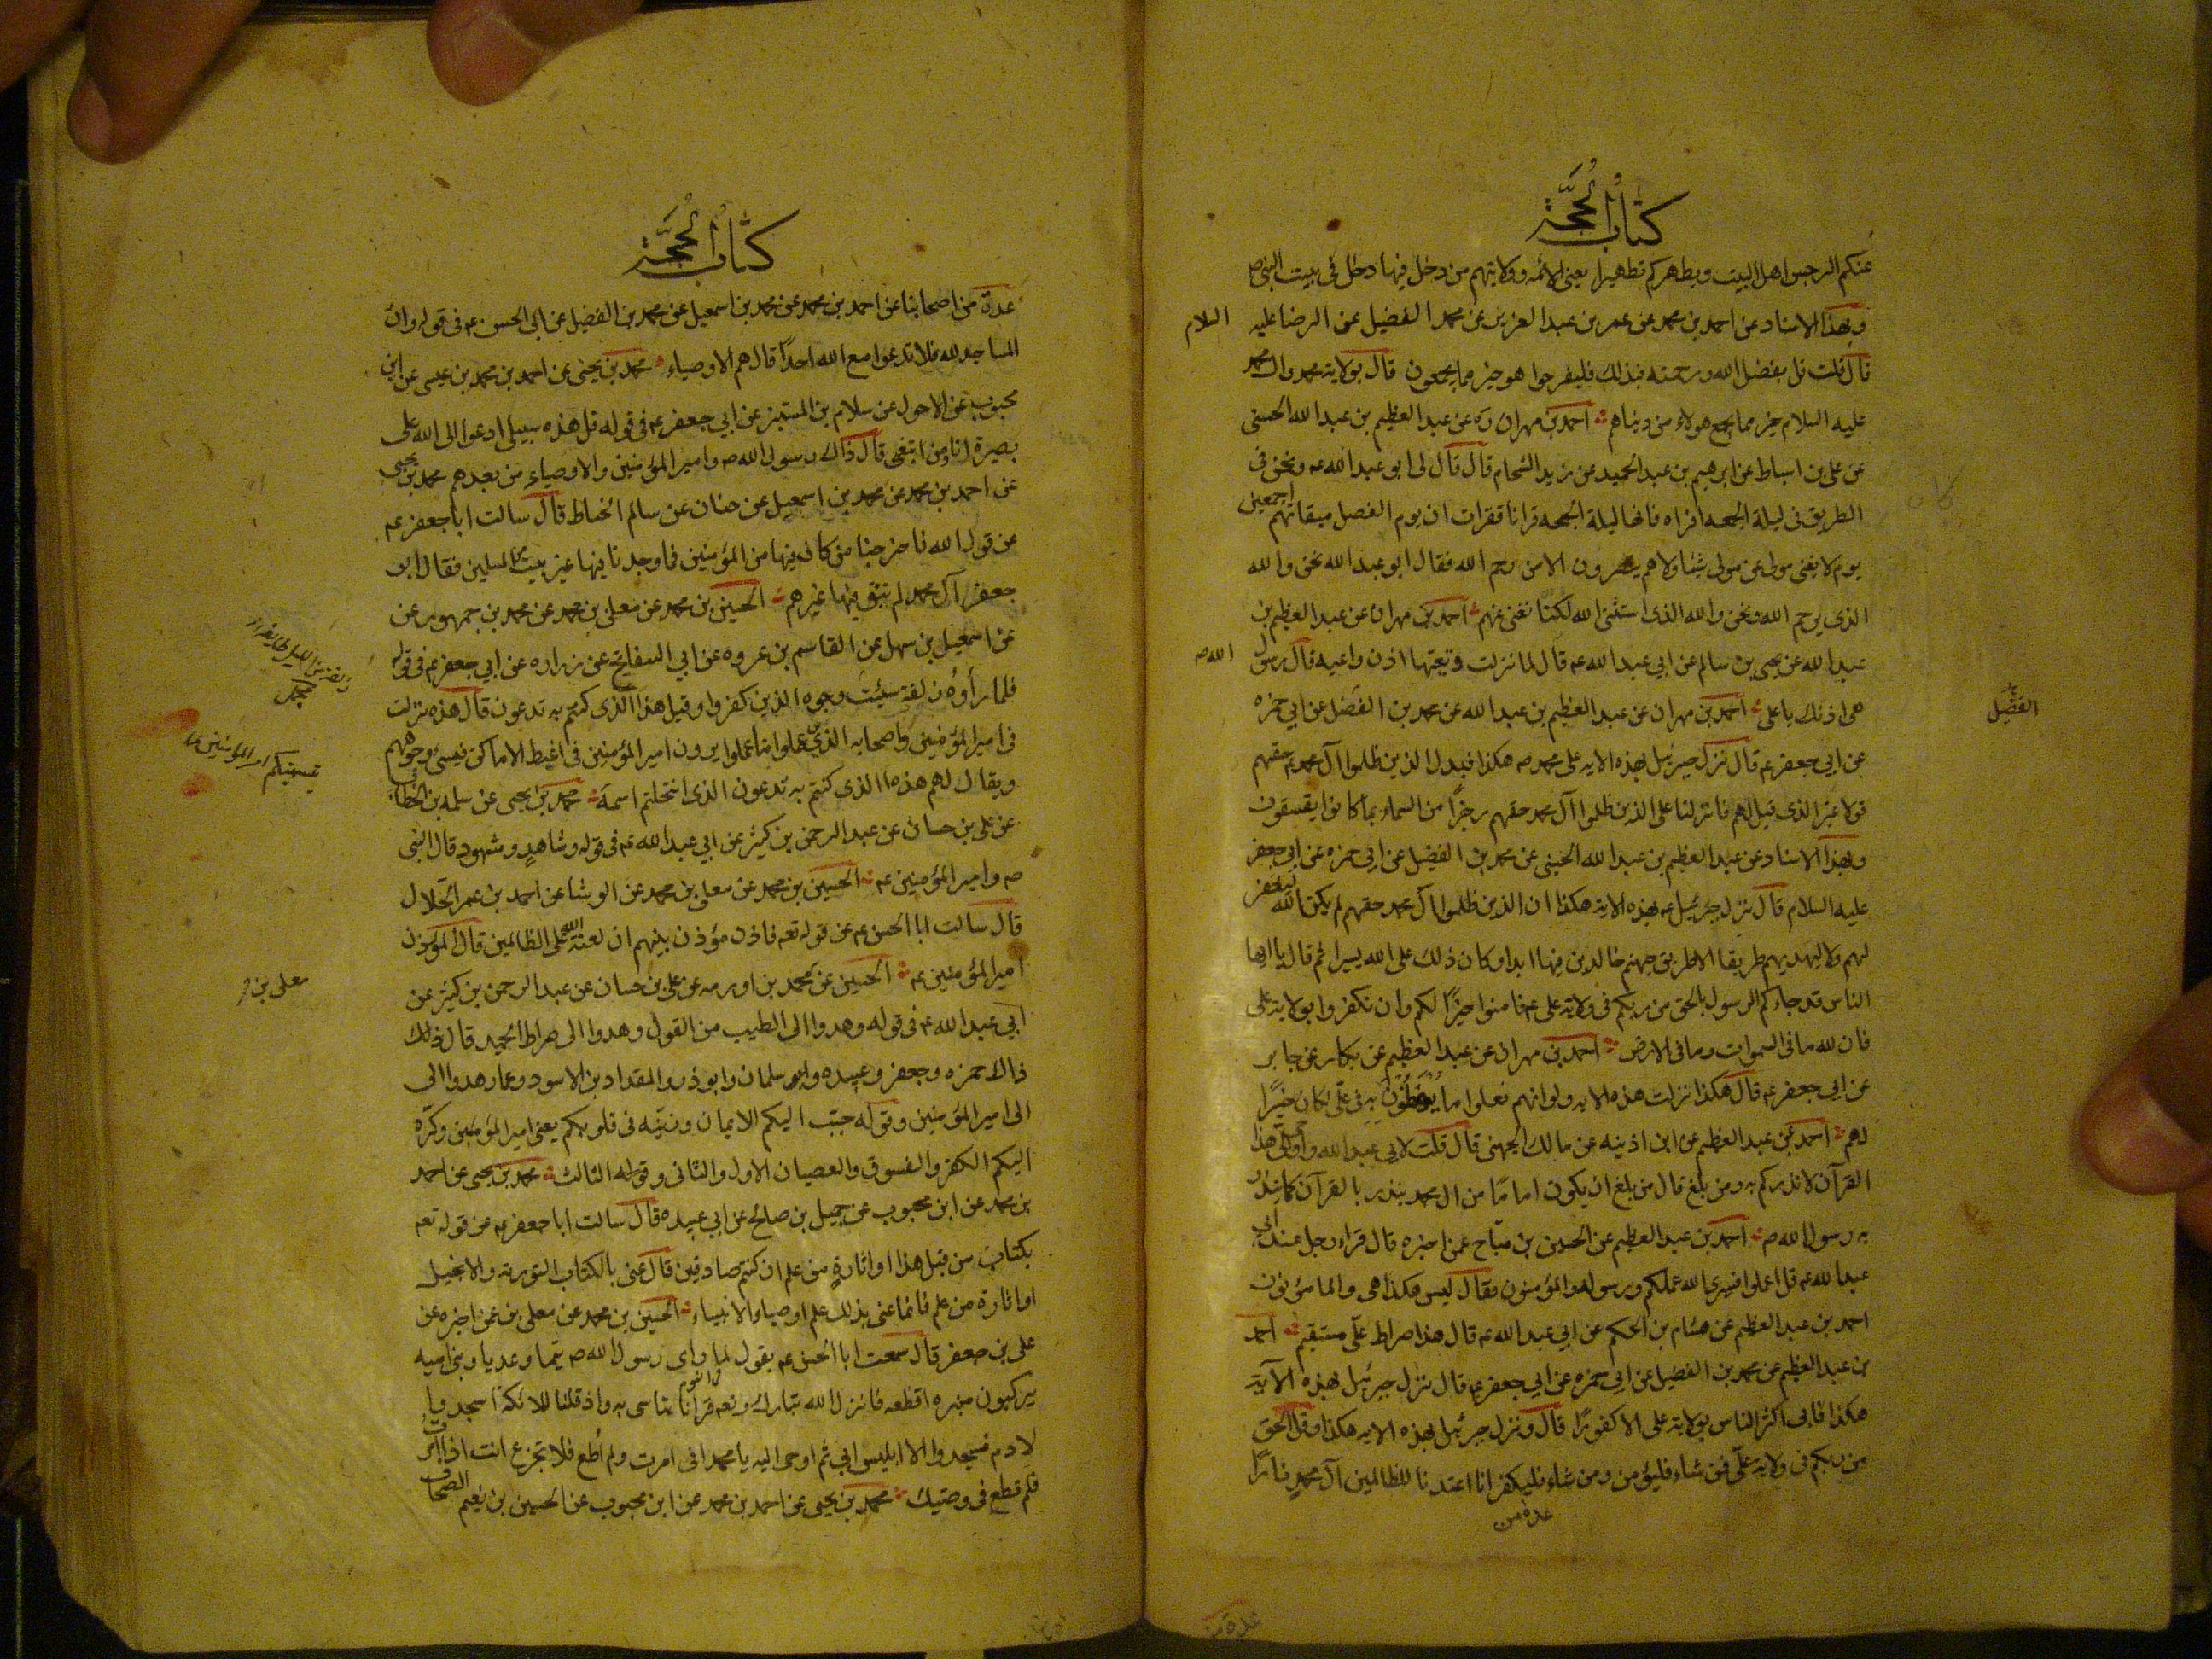 كتاب الحجة
عنكم الرجس اهل البيت ويطهركم تطهيرا يعنى الائمه وولايتهم من دخل فيها دخل فى بيت النبى ص
وبهذا الاسناد عن احمد بن محمد عن عمر بن عبد العزيز عن محمد الفضيل عن الرضا عليه السلام
قال قلت قل بفضل الله ورحمته فبذلك فليفرحوا هو خير مما يجمعون قال بولاية محمد وال محمد
عليه السلام خير مما يجمع هولاء من دنياهم احمد بن مهران ره عن عبد العظيم بن عبد الله الحسنى
عن على بن اسباط عن ابرهيم بن عبد الحميد عن زيد الشحام قال قال لى ابو عبد الله ع ونحن فى
الطريق فى ليلة الجمعه اقراه فانها ليلة الجمعه قرانا فقرات ان يوم الفصل ميقاتهم اجمعين
يوم لا يغنى مولى عن مولى شيئا ولا هم ينصرون الا من رحم الله فقال ابو عبد الله نحن والله
الذى يرحم الله ونحن والله الذى استثنى الله لكنا نغنى عنهم احمد بن مهران عن عبد العظيم بن
عبد الله عن يحيى بن سالم عن ابي عبد الله ع قال لما نزلت وتعيها اذن واعيه قال رسول الله ص
هى اذنك يا على احمد بن مهران عن عبد العظيم بن عبد الله عن محمد بن الفضل عن ابي حمزه
الفضيل
عن ابي جعفر ع قال نزل جبرئيل بهذه الايه على محمد ص هكذا فبدل الذين ظلموا آل محمد حقهم
قولا غير الذى قيل لهم فانزلنا على الذين ظلموا آل محمد حقهم رجزا من السماء بما كانوا يفسقون
وبهذا الاسناد عن عبد العظيم بن عبد الله الحسنى عن محمد بن الفضيل عن ابي حمزه عن ابي جعفر
عليه السلام قال نزل جبرئيل ع بهذه الاية هكذا ان الذين ظلموا آل محمد حقهم لم يكن الله ليغفر
لهم ولا ليهديهم طريقا الا طريق جهنم خالدين فيها ابدا وكان ذلك على الله يسيرا ثم قال يا ايها
الناس قد جاءكم الرسول بالحق من ربكم فى ولاية على ع فامنوا خيرًا لكم وان تكفروا بولاية على
فان لله ما فى السموات وما فى الارض احمد بن مهران عن عبد العظيم عن بكار عن جابر
عن ابي جعفر ع قال هكذا نزلت هذه الايه ولو انهم فعلوا ما يوعظون به فى علّى لكان خيرًا
لهم احمد عن عبد العظيم عن ابن اذينه عن مالك الجهنى قال قلت لابي عبد الله واوحى الى هذا
القرآن لانذركم به ومن بلغ قال من بلغ ان يكون اماما من ال محمد ينذر بالقرآن كما ينذر
به رسول الله ص احمد بن عبد العظيم عن الحسين بن مياح عمن اخبره قال قراء رجل عند ابي
عبد الله ع قل اعملوا فسيرى الله عملكم ورسوله والمؤمنون فقال ليس هكذا هى وانما
احمد بن عبد العظيم عن هشام بن الحكم عن ابي عبد الله ع قال هذا صراط علّى مستقيم احمد
بن عبد العظيم عن محمد بن الفضيل عن ابي حمزه عن ابي جعفر ع قال نزل جبرئيل بهذه الآية
هكذا فابى اكثر الناس بولاية على الا كفورًا قال ونزل جبرئيل بهذه الايه هكذا وقل الحق
من ربكم فى ولاية علّى فمن شاء فليؤمن ومن شاء فليكفر انا اعتدنا للظالمين آل محمد نارًا
عدة من
كتاب الحجة
عدة من اصحابنا عن احمد بن محمد عن محمد بن اسمعيل عن محمد بن الفضيل عن ابي الحسن ع فى قوله وان
المساجد لله فلا تدعوا مع الله احدًا قال هم الاوصياء محمد بن يحيى عن احمد بن محمد بن عيسى عن ابن
محبوب عن الاحول عن سلام بن المستنير عن ابي جعفر ع فى قوله قل هذه سبيلى ادعوا الى الله على
بصيرة انا ومن اتبعنى قال ذاك رسول الله ص وامير المؤمنين والاوصياء من بعدهم محمد بن يحيى
عن احمد بن محمد عن محمد بن اسمعيل عن حنان عن سالم الحناط قال سالت ابا جعفر ع
عن قول الله فاخرجنا من كان فيها من المؤمنين فما وجدنا فيها غير بيت من المسلمين فقال ابو
جعفر آل محمد لم يبق فيها غيرهم الحسين بن محمد عن معلى بن محمد عن محمد بن جمهور عن
عن اسمعيل بن سهل عن القاسم بن عروه عن ابي السفاتج عن زراره عن ابي جعفر ع فى قوله
فلما رأوه زلفة سيئت وجوه الذين كفروا وقيل هذا الذى كنتم به تدعون قال هذه نزلت
فى امير المؤمنين واصحابه الذين عملوا ما عملوا يرون امير المؤمنين فى اغبط الاماكن فيسئ وجوههم
ويقال لهم هذه الذى كنتم به تدعون الذى انتحلتم اسمه محمد بن يحيى عن سلمه بن الخطاب
عن على بن حسان عن عبد الرحمن بن كثير عن ابي عبد الله ع فى قوله وشاهد ومشهود قال النبى
ص وامير المؤمنين ع الحسين بن محمد عن معلى بن محمد عن الوشا عن احمد بن عمر الحلال
قال سالت ابا الحسن ع عن قوله تعه فاذن مؤذن بينهم ان لعنة الله على الظالمين قال المؤذن
امير المؤمنين ع الحسين عن محمد بن اورمه عن على بن حسان عن عبد الرحمن بن كثير عن
معلى بن
ابي عبد الله ع فى قوله وهدوا الى الطيب من القول وهدوا الى صراط الحميد قال ذلك
ذاك حمزه وجعفر وعبيده وسلمان وابو ذر والمقداد بن الاسود وعمار هدوا الى
الى امير المؤمنين وقوله حبّب اليكم الايمان وزيّنه فى قلوبكم يعنى امير المؤمنين وكرّه
اليكم الكفر والفسوق والعصيان الاول والثانى وقوله الثالث محمد بن يحيى عن احمد
بن محمد عن ابن محبوب عن جميل بن صالح عن ابي عبيده قال سالت ابا جعفر ع عن قوله تعه
بكتاب من قبل هذا او اثارة من علم ان كنتم صادقين قال عنى بالكتاب التورية والانجيل
او اثارة من علم فانما عنى بذلك علم اوصياء الانبياء الحسين بن محمد عن معلى بن عمن اخبره عن
على بن جعفر قال سمعت ابا الحسن ع يقول لما راى رسول الله ص تيما وعديا وبنى اميه
يركبون منبره افظعه فانزل الله تبارك وتعه قرانا يتاسى به واذ قلنا للملائكة اسجدوا
لادم فسجدوا الا ابليس ابي ثم اوحى اليه يا محمد انى امرت ولم اُطع فلا تجزع انت اذا امرت
فلم تطع فى وصيّك محمد بن يحيى عن احمد بن محمد عن ابن محبوب عن الحسين بن نعيم الصحاف